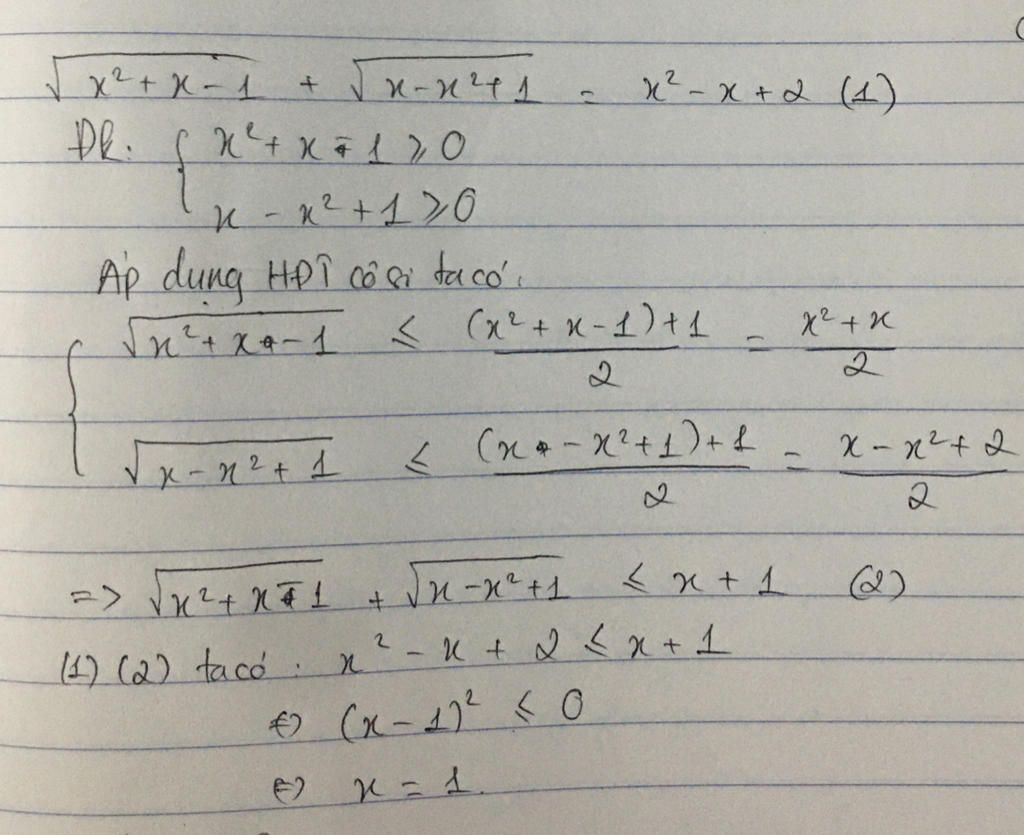 √(x² + x - 1) + √(x - x² + 1) = x² - x + 2 (1)
Đk: { x² + x - 1 ≥ 0
x - x² + 1 ≥ 0
Áp dụng HĐT côsi ta có:
{ √(x² + x - 1) ≤ ((x² + x - 1) + 1)/2 = (x² + x)/2
√(x - x² + 1) ≤ ((x - x² + 1) + 1)/2 = (x - x² + 2)/2
=> √(x² + x - 1) + √(x - x² + 1) ≤ x + 1 (2)
(1) (2) ta có: x² - x + 2 ≤ x + 1
⇔ (x - 1)² ≤ 0
⇔ x = 1.